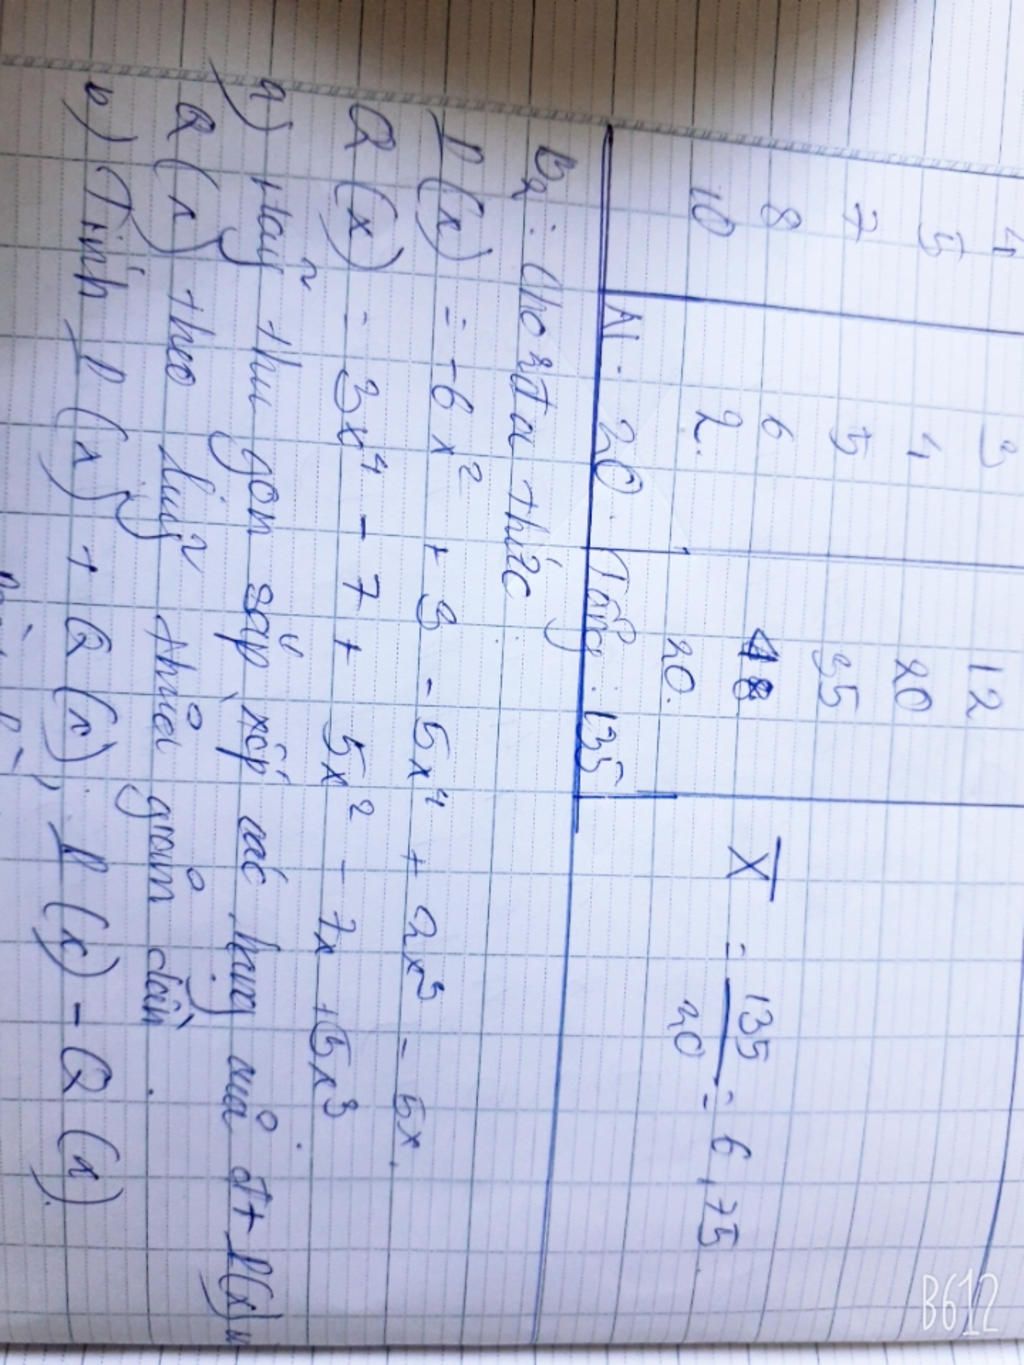 4 3 12
5 4 20
7 5 35
8 6 48
10 2. 20.
X = 135/20 = 6,75.
N = 20. Tổng: 135
B2: Cho đa thức:
P(x) = -6x² + 3 - 5x⁴ + 2x³ - 5x.
Q(x) = 3x⁴ - 7 + 5x² - 7x + 5x³
a) Hãy thu gọn sắp xếp các hạng mũ đt P(x)
Q(x) theo lũy thừa giảm dần.
b) Tính P(x) + Q(x), P(x) - Q(x)
B612